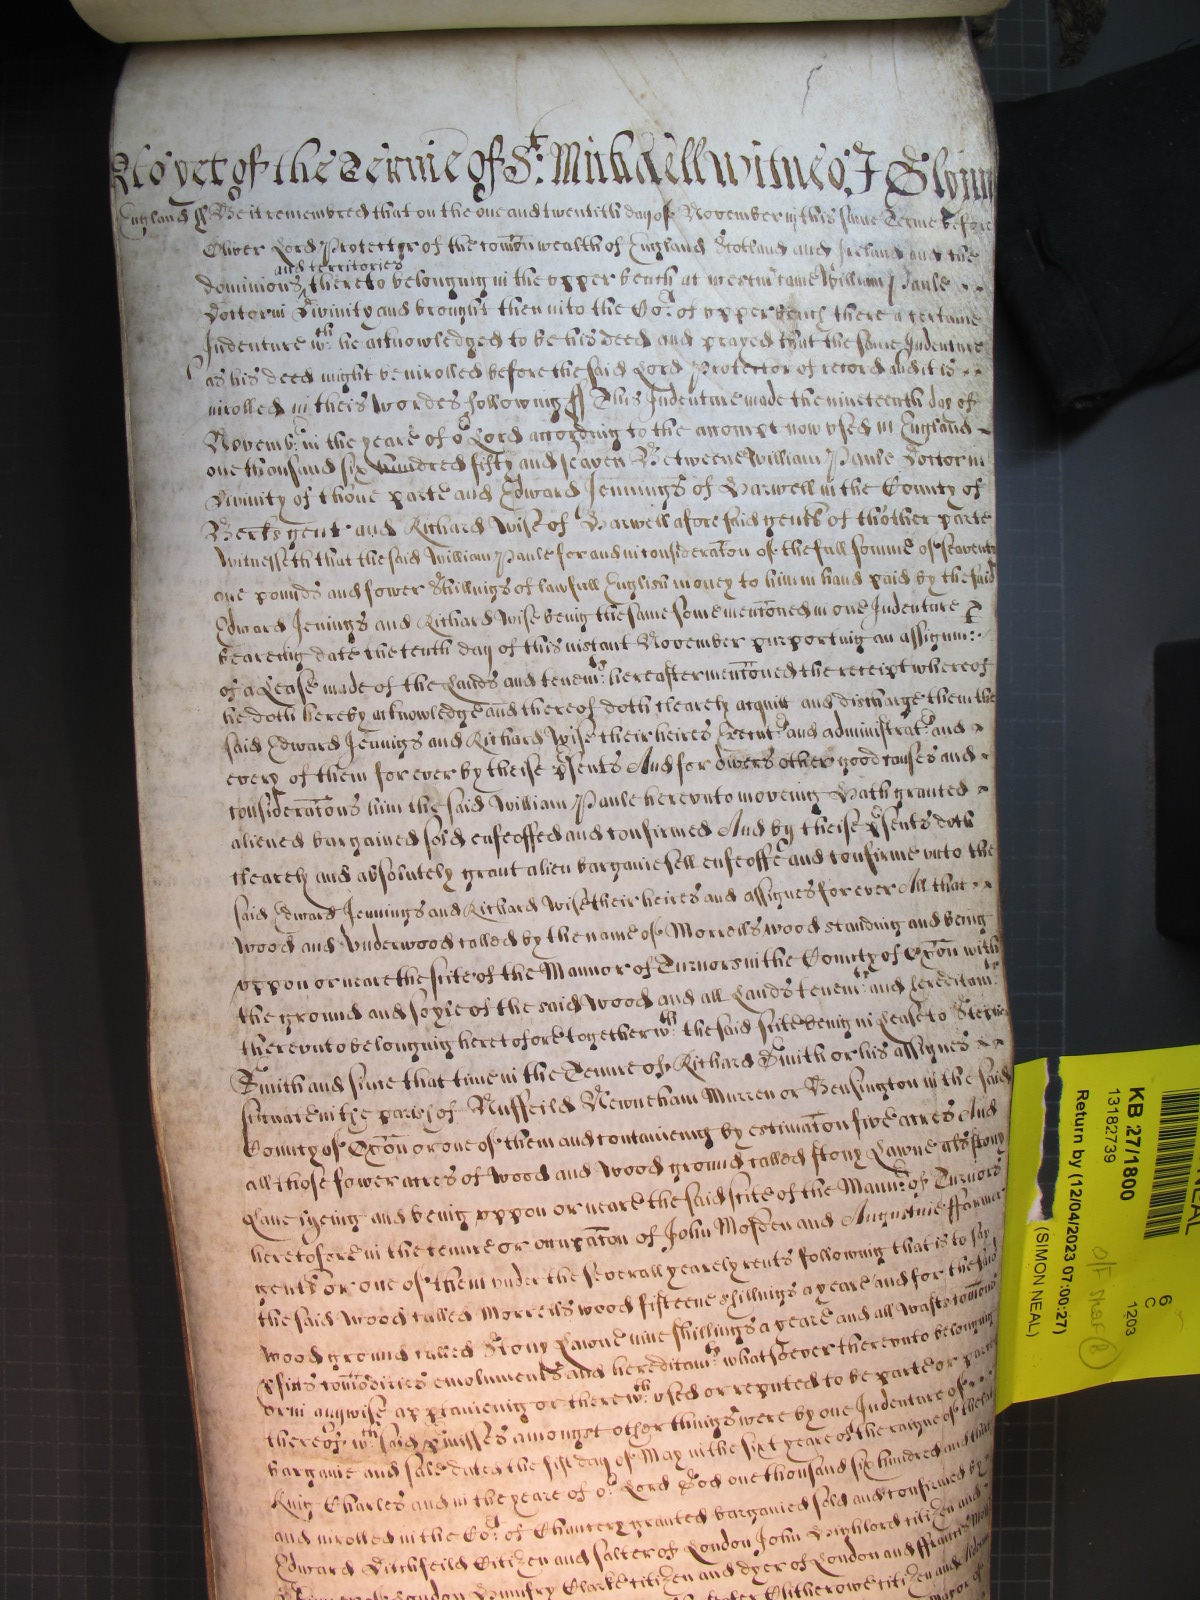 As yet of the Terme of St. Michaell witnes J Glynn
England ss Be it remembred that on the one and twentith day of November in this same Terme before
Oliver Lord Protector of the comon wealth of England Scotland and Ireland and the
and territories
dominions thereto belonging in the upper bench at westm came William Paule
Doctor in Divinity and brought then into the Cort of upper bench there a certaine
Indenture wch he acknowledged to be his deed and prayed that the same Indenture
as his deed might be inrolled before the said Lord Protector of record and it is
inrolled in theis wordes following ss This Indenture made the nineteenth day of
Novembr in the yeare of or Lord according to the accompt now used in England
one thousand six hundred fifty and seaven Betweene William Paule Doctor in
Divinity of thone parte and Edward Jennings of Harwell in the County of
Berks gent and Richard Wise of Harwell aforesaid gent of thother parte
Witnesseth that the said William Paule for and in consideracon of the full somme of seaventy
one pounds and fower shillings of lawfull English money to him in hand paid by the said
Edward Jennings and Richard Wise being the same some mencioned in one Indenture
beareing date the tenth day of this instant November purporting an assignmt
of a Lease made of the Lands and tenemts hereafter mencioned the receipt whereof
he doth hereby acknowledge and thereof doth clearely acquitt and discharge them the
said Edward Jennings and Richard Wise their heires Executrs and administratrs and
every of them for ever by theise psents And for divers other good causes and
consideracons him the said William Paule hereunto moveing Hath granted
aliened bargained sold enfeoffed and confirmed And by theise psents doth
clearely and absolutely grant alien bargaine sell enfeoffe and confirme unto the
said Edward Jennings and Richard Wise their heires and assignes for ever All that
wood and underwood called by the name of Morrells wood standing and being
uppon or neare the scite of the Mannor of Turnors in the County of Oxon with
the ground and soyle of the said wood and all Lands tenemts and hereditamts
thereunto belonging heretofore together wth the said scite being in Lease to
Smith and since that time in the Tenure of Richard Smith or his assignes
scituate in the parish of Nuffeild Newneham Murren or Bensington in the said
County of Oxon or one of them and containeing by estimacon five acres And
all those fower acres of wood and wood ground called stony Lawne als stony
Lane lyeing and being uppon or neare the said scite of the Mannor of Turnors
heretofore in the tenure or occupacon of John Mosden and Augustine ffarmer
gents or one of them under the severall yearely rents following that is to say
the said wood called Morrells wood fifteene shillings a yeare and for the said
wood ground called Stony Lawne nine shillings a yeare and all wasts comons
pfitts comodities emoluments and hereditamts whatsoever thereunto belonging
or in anywise appteineing or therewth used or reputed to be parte or parcell
thereof wch said pmisses amongst other things were by one Indenture of
bargaine and sale dated the first day of May in the sixt yeare of the raigne of the late
King Charles and in the yeare of or Lord God one thousand six hundred and thirty
and inrolled in the Cort of Chancery granted bargained sold and confirmed by
Edward Ditchfeild Citizen and salter of London John Highlord citizen and
Skinner of London Humfry Clarke citizen and dyer of London and ffrancis
Clitherowe citizen and
KB 27/1800
13182739
Return by (12/04/2023 07:00:27)
(SIMON NEAL)
6
C
1203
NEAL